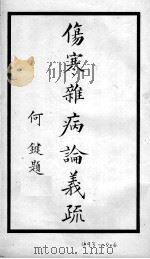 傷寒雜病論義疏
何鍵題